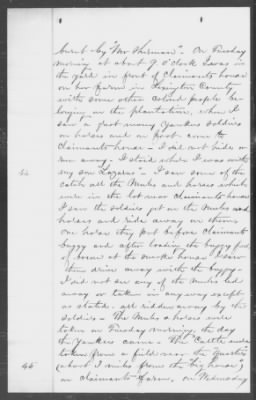 burnt by "Mr Sherman". On Tuesday
morning at about 9 o'clock I was in
the yard in front of Claimants house
on her farm in Lexington County
with some other colored people be-
longing on the plantation, when I
saw a great many Yankee soldiers
on horses and on foot come to
Claimants house - I did not hide or
run away. I staid while I was with
my son Lazarus - I saw some of the
catch all the Mules and horses which
were in the lot near Claimants house
I saw the soldiers get on the Mules and
horses and ride away on them
One horse they put before Claimants
buggy and after loading the buggy full
of bacon at the smoke house I saw
them drive away with the buggy -
I did not see any of the Mules led
away or taken in any way except
as stated and ridden away by the
soldiers - The Mules & horses were
taken on Tuesday morning, the day
the Yankees came - The Cattle were
taken from a field near the Quarters
(about 1 miles from the big house)
on claimants Farm, on Wednesday